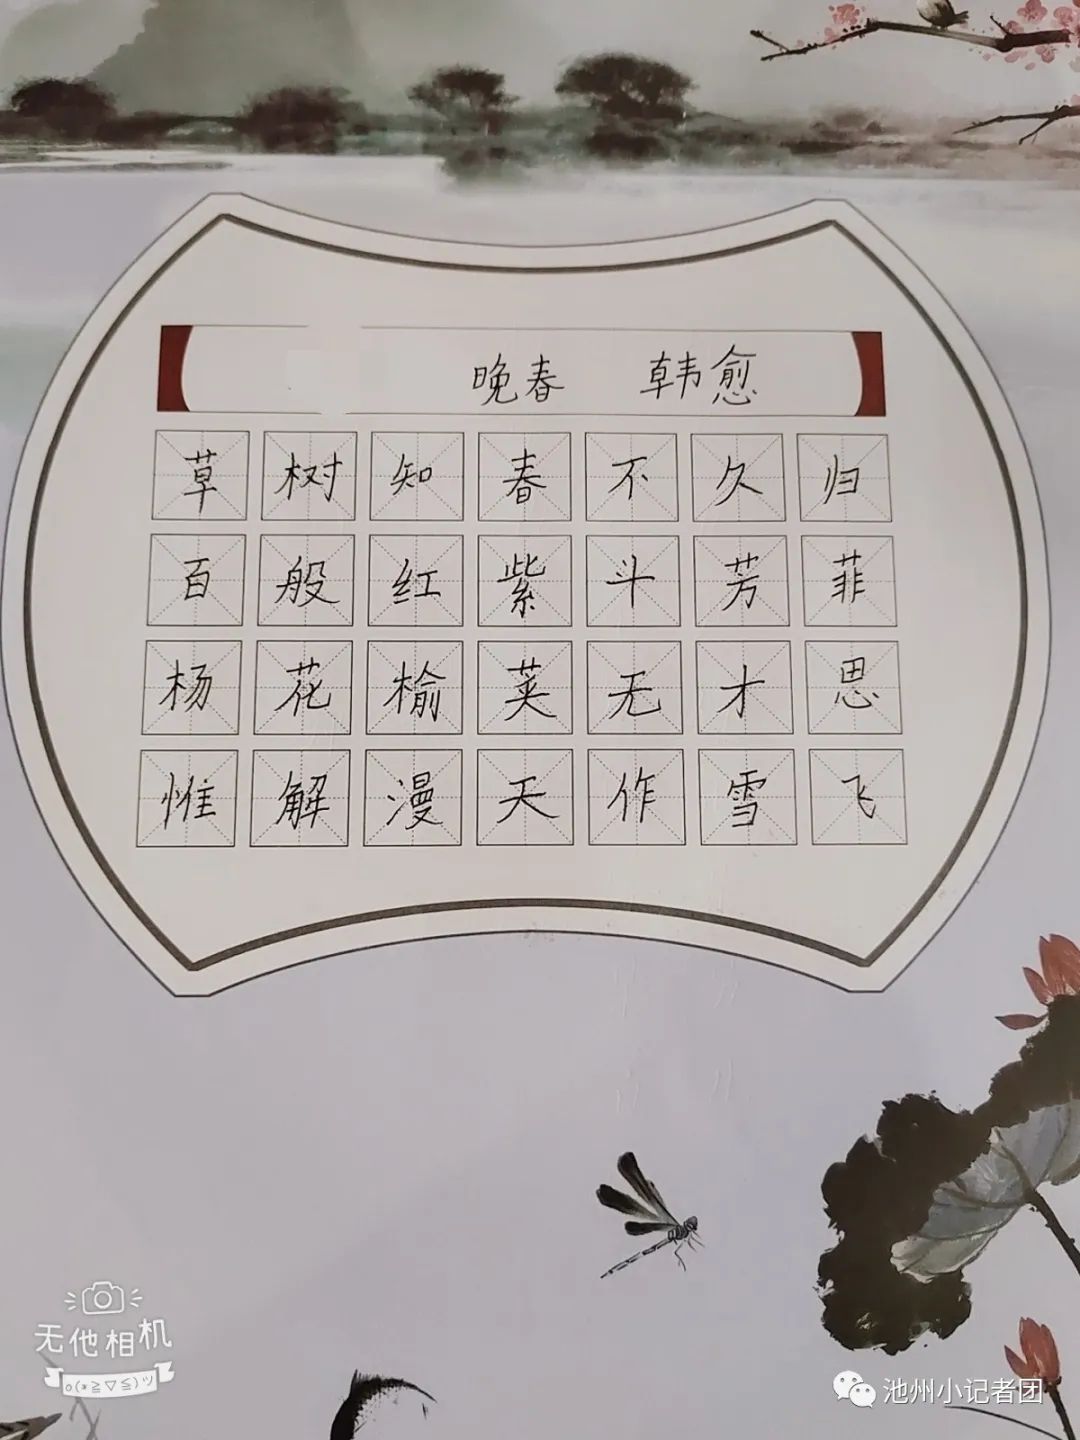 晚春 韩愈
草树知春不久归
百般红紫斗芳菲
杨花榆荚无才思
惟解漫天作雪飞
无他相机
o(*≧▽≦)ツ
池州小记者团